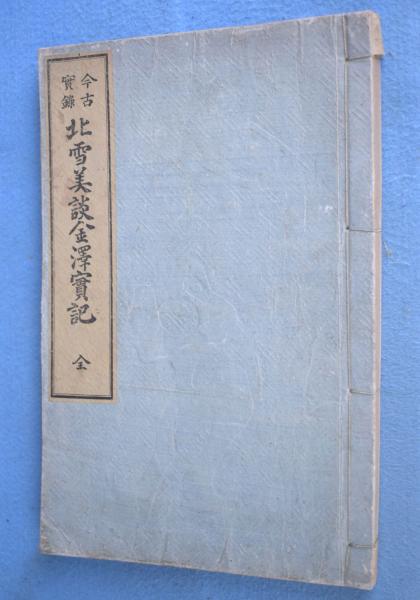 今古
實錄
北雪美談金澤實記
全